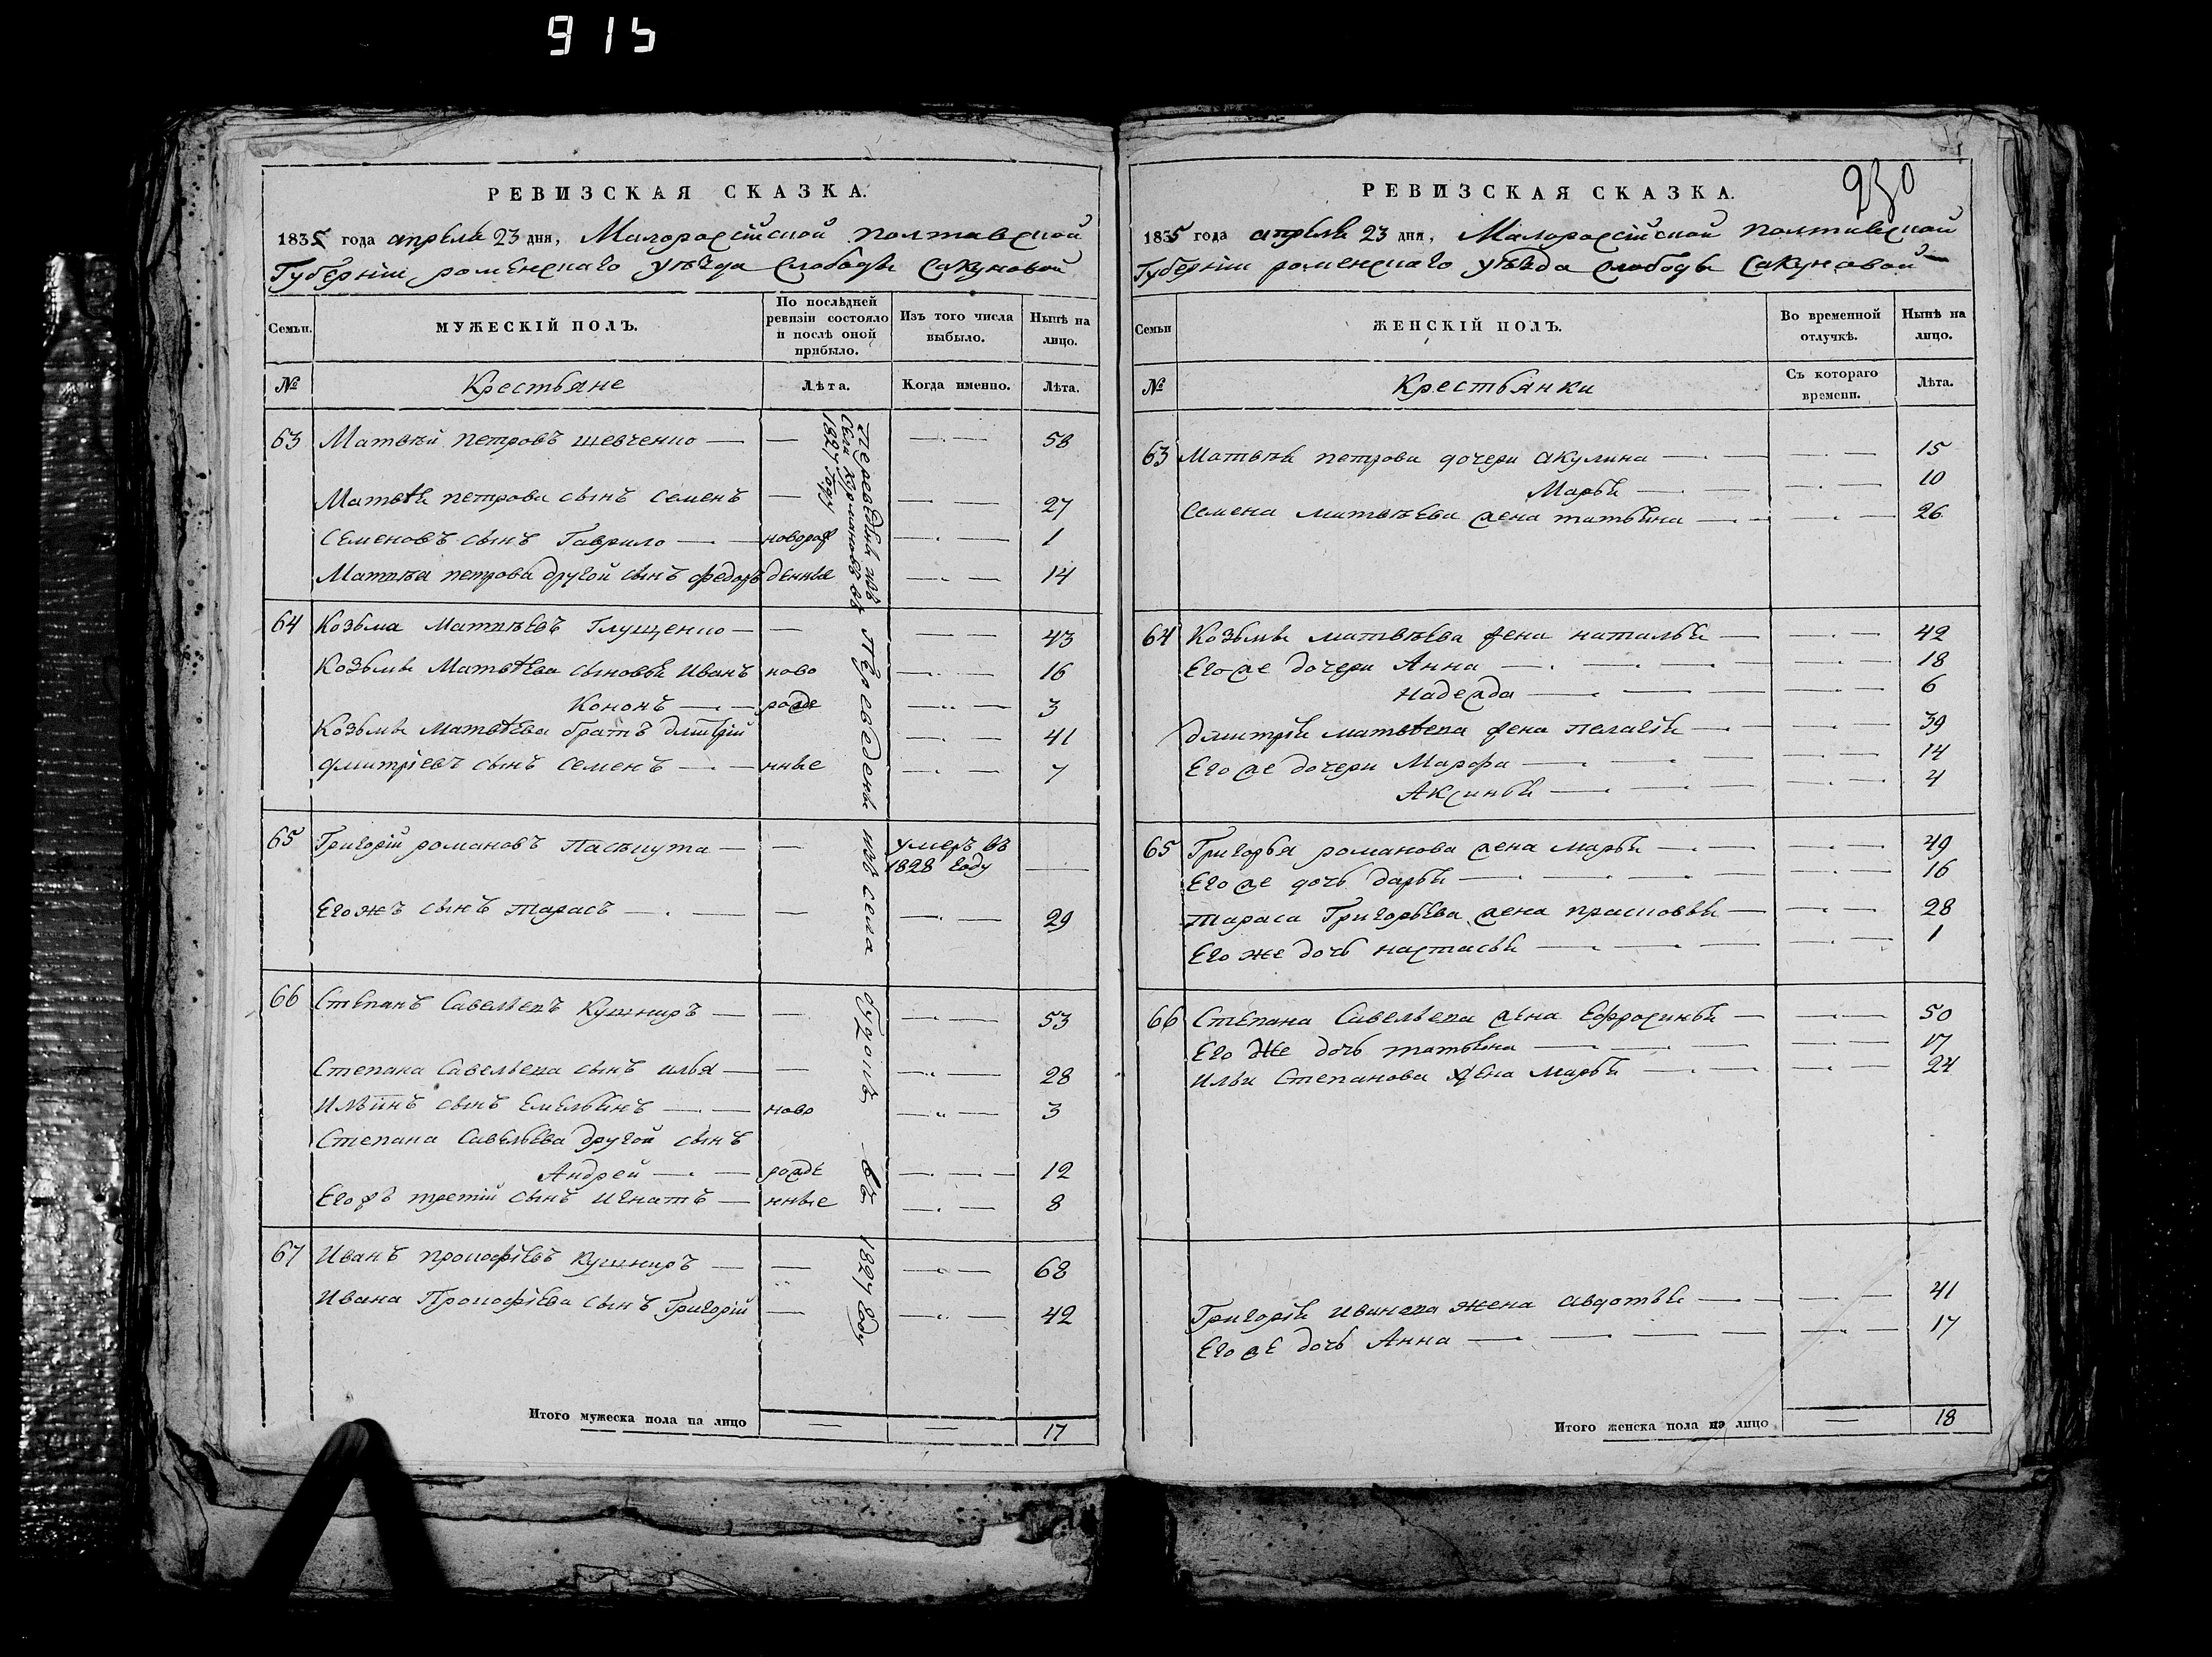 915
РЕВИЗСКАЯ СКАЗКА.
1835 года апреля 23 дня, Малороссійской Полтавской
Губерніи роменскаго уѣзда слободы Сакуновой
Семьи.
МУЖЕСКІЙ ПОЛЪ.
По послѣдней ревизіи состояло и послѣ оной прибыло.
Изъ того числа выбыло.
Нынѣ на лицо.
№
Крестьяне
Лѣта.
Когда именно.
Лѣта.
63 Матвѣй петровъ шевченко — — — 58
Матвѣя петрова сынъ семенъ — — 27
Семеновъ сынъ Гаврило — новорож — 1
Матвѣя петрова другой сынъ федоръ денные — 14
Переведены изъ
села в
1827 году
64 Козьма Матвѣевъ Глущенко — — — 43
Козьмы Матвѣева сыновья Иванъ ново — 16
Кононъ — рожде — 3
Козьмы Матвѣева братъ дмитрій — 41
дмитріевъ сынъ семенъ — нные — 7
65 Григорій романовъ Пасѣкута — — умеръ въ 1828 году —
Егожъ сынъ тарасъ — — — 29
66 Степанъ Савельевъ Кушниръ — — — 53
Степана Савельева сынъ илья — — — 28
Ильинъ сынъ Емельянъ — ново — 3
Степана Савельева другой сынъ
Андрей — рожде — 12
Егожъ третій сынъ Игнатъ — нные — 8
67 Иванъ прокофіевъ Кушниръ — — — 68
Ивана Прокофіева сынъ Григорій — — 42
Переведены изъ села въ 1827 году
Итого мужеска пола на лицо — — 17
230
РЕВИЗСКАЯ СКАЗКА.
1835 года апреля 23 дня, Малороссійской Полтавской
Губерніи роменскаго уѣзда слободы Сакуновой
Семьи
ЖЕНСКІЙ ПОЛЪ.
Во временной отлучкѣ.
Нынѣ на лицо.
№
Крестьянки
Съ котораго времени.
Лѣта.
63 Матвѣя петрова дочери акулина — — 15
Марья — — 10
Семена матвѣева жена татьяна — — 26
64 Козьмы матвѣева жена наталья — — 42
Егоже дочери Анна — — 18
Надежда — — 6
дмитрія матвѣева жена пелагія — — 39
Егоже дочери Марфа — — 14
Аксинья — — 4
65 Григорья романова жена марья — — 49
Его же дочь дарья — — 16
тараса Григорьева жена прасковья — — 28
Его же дочь настасья — — 1
66 Степана Савельева жена Ефросинья — — 50
Его же дочь татьяна — — 17
Ильи Степанова жена марья — — 24
Григорія иванова жена авдотья — — 41
Его же дочь Анна — — 17
Итого женска пола на лицо — 18